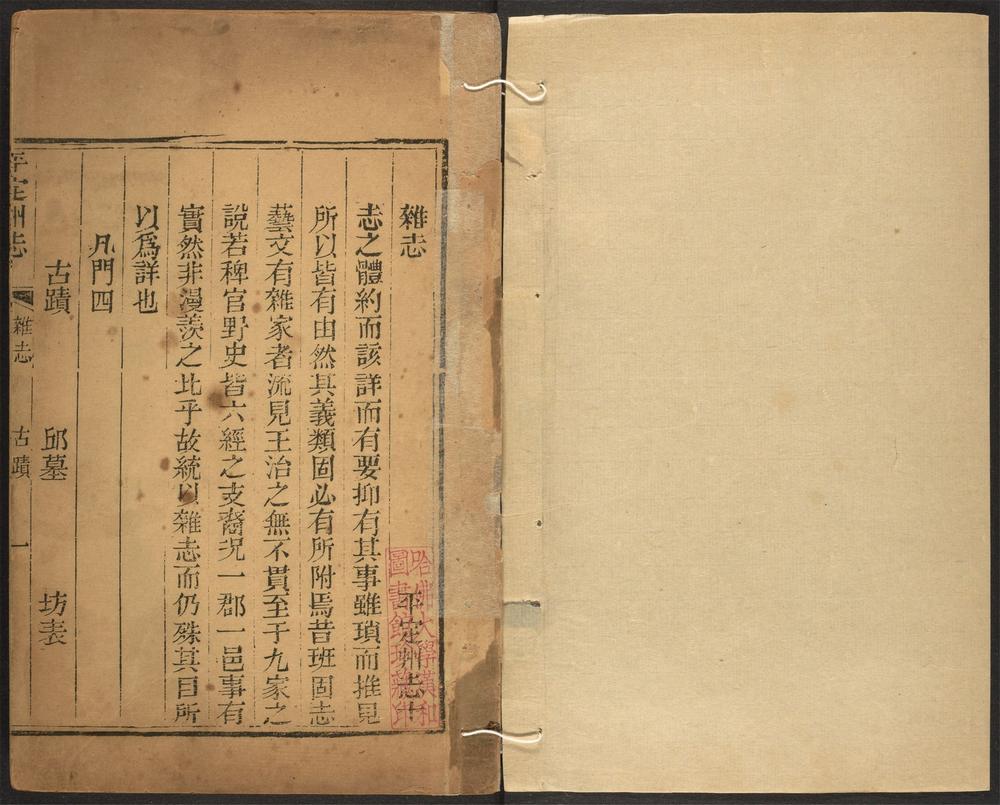 雜志 平定州志十
志之體約而該詳而有要抑有其事雖瑣而推見
所以皆有由然其義類固必有所附焉昔班固志
藝文有雜家者流見王治之無不貫至于九家之
說若稗官野史皆六經之支裔況一郡一邑事有
實然非漫羨之比乎故統以雜志而仍殊其目所
以爲詳也
凡門四
古蹟 邱墓 坊表
平定州志 雜志 古蹟 一
哈佛大學漢和
圖書館珍藏印